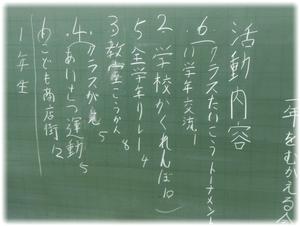 一年をむかえる会
活動内容
6 クラスたいこうトーナメント
い学年交流 1
2 学校かくれんぼ 10
5 全学年リレー 4
3 教室こうかん 8
クラスが見 5
4 あいさつ運動 5
(1) こども商店街 12
1年生